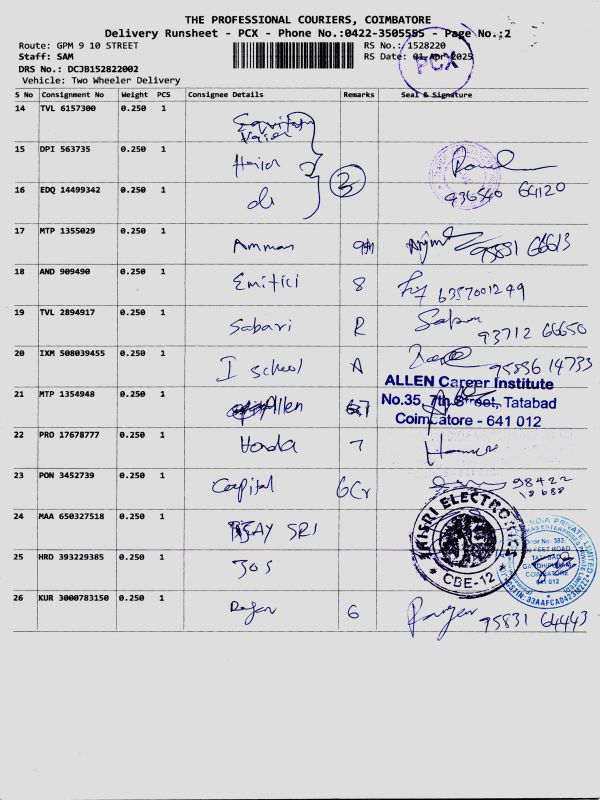 THE PROFESSIONAL COURIERS, COIMBATORE
Delivery Runsheet - PCX - Phone No.:0422-3505555 - Page No.:2
Route: GPM 9 10 STREET
RS No.: 1528220
Staff: SAM
RS Date: 01-Apr-2025
PCX
DRS No.: DCJB152822002
Vehicle: Two Wheeler Delivery
S No Consignment No Weight PCS Consignee Details Remarks Seal & Signature
14 TVL 6157300 0.250 1
15 DPI 563735 1
3
16 EDQ 14499342 0.250 1 936540 64120
17 MTP 1355029 0.250 1 Amman 95831 66613
18 AND 909490 0.250 1 Emitici 8 6357001249
19 TVL 2894917 0.250 1 Sabari R 93712 66650
20 IXM 508039455 0.250 1 I School A 95856 14733
ALLEN Career Institute
No.35, 7th Street, Tatabad
Coimbatore - 641 012
21 MTP 1354948 0.250 1 Allen
22 PRO 17678777 0.250 1 Honda 7
23 PON 3452739 0.250 1 Capital 6Cr 98422
24 MAA 650327518 0.250 1 SRI
SRISRI ELECTRONICS
* CBE-12 *
25 HRD 393229385 0.250 1 JOS
INDIA PRIVATE LIMITED
Door No: 383,
FEET ROAD
COIMBATORE
641 012
26 KUR 3000783150 0.250 1 Rajan 6 95831 64443